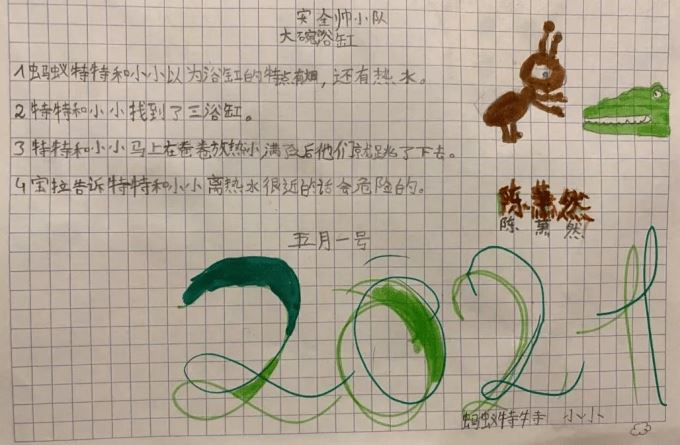 安全帅小队
大碗浴缸
1蚂蚁特特和小小以为浴缸的特点有烟，还有热水。
2特特和小小找到了三浴缸。
3特特和小小马上在 放热 满了后他们就跳了下去。
4宝拉告诉特特和小小离热水很近的话会危险的。
陈萧然
陈萧然
五月一号
2021
蚂蚁特特 小小